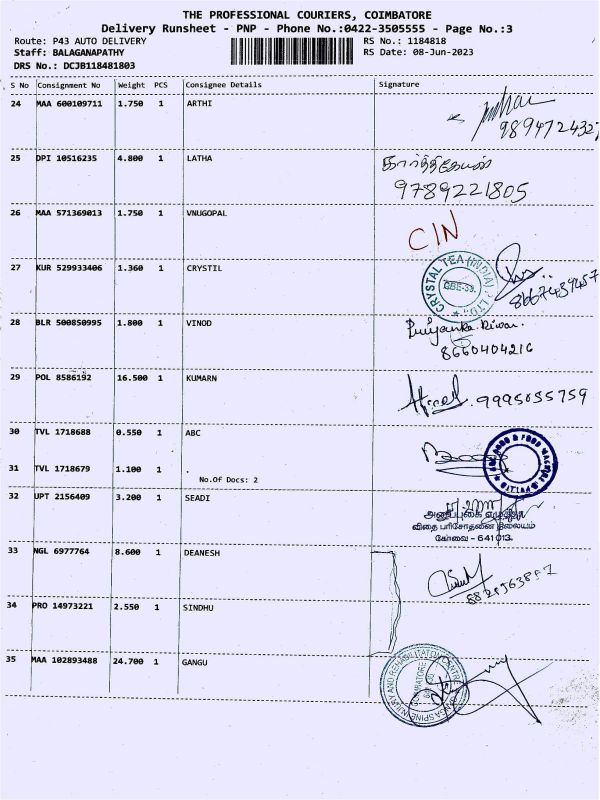 THE PROFESSIONAL COURIERS, COIMBATORE
Delivery Runsheet - PNP - Phone No.:0422-3505555 - Page No.:3
Route: P43 AUTO DELIVERY RS No.: 1184818
Staff: BALAGANAPATHY RS Date: 08-Jun-2023
DRS No.: DCJB118481803
S No Consignment No Weight PCS Consignee Details Signature
24 MAA 600109711 1.750 1 ARTHI
9894724327
25 DPI 10516235 4.800 1 LATHA கார்த்திகேயன்
9789221805
26 MAA 571369013 1.750 1 VNUGOPAL
CIN
27 KUR 529933406 1.360 1 CRYSTIL
CRYSTAL TEA (INDIA) P LTD.
CBE-33.
8667439457
28 BLR 500850995 1.800 1 VINOD Priyanka
8660404216
29 POL 8586192 16.500 1 KUMARN
9995055759
30 TVL 1718688 0.550 1 ABC
31 TVL 1718679 1.100 1 .
No.Of Docs: 2
32 UPT 2156409 3.200 1 SEADI
விதை பரிசோதனை நிலையம்
கோவை - 641 013.
33 NGL 6977764 8.600 1 DEANESH
34 PRO 14973221 2.550 1 SINDHU
35 MAA 102893488 24.700 1 GANGU
GANGA SPINE INJURY AND REHABILITATION CENTRE
COIMBATORE